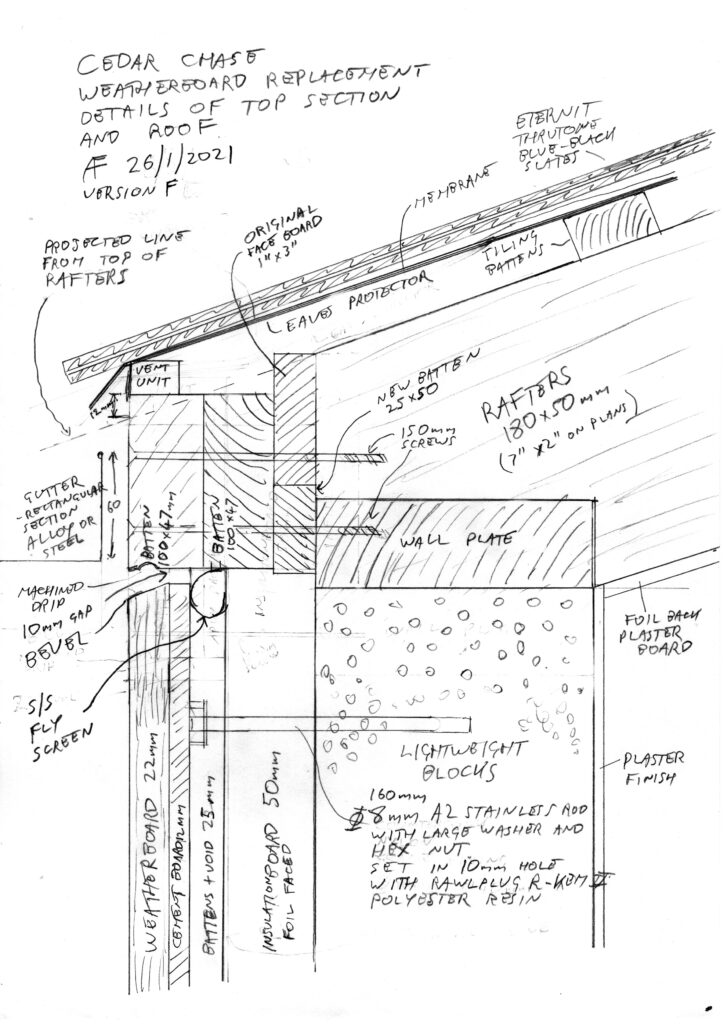 CEDAR CHASE
WEATHERBOARD REPLACEMENT
DETAILS OF TOP SECTION
AND ROOF
AF 26/1/2021
VERSION F
ETERNIT
THRUTONE
BLUE-BLACK
SLATES
MEMBRANE
ORIGINAL
FACE BOARD
1" X 3"
PROJECTED LINE
FROM TOP OF
RAFTERS
TILING
BATTENS
EAVES PROTECTOR
VENT
UNIT
12mm
NEW BATTEN
25X50
RAFTERS
180X50mm
(7" X2" ON PLANS)
150mm
SCREWS
GUTTER
-RECTANGULAR
SECTION
ALLOY OR
STEEL
60
BATTEN
100X47mm
BATTEN
100X47
WALL PLATE
MACHINED
DRIP
10mm GAP
BEVEL
S/S
FLY
SCREEN
FOIL BACK
PLASTER
BOARD
PLASTER
FINISH
LIGHTWEIGHT
BLOCKS
160mm
8mm A2 STAINLESS ROD
WITH LARGE WASHER AND
HEX NUT
SET IN 10mm HOLE
WITH RAWLPLUG R-KEM II
POLYESTER RESIN
WEATHERBOARD 22mm
CEMENT BOARD 12mm
BATTENS + VOID 25mm
INSULATIONBOARD 50mm
FOIL FACED